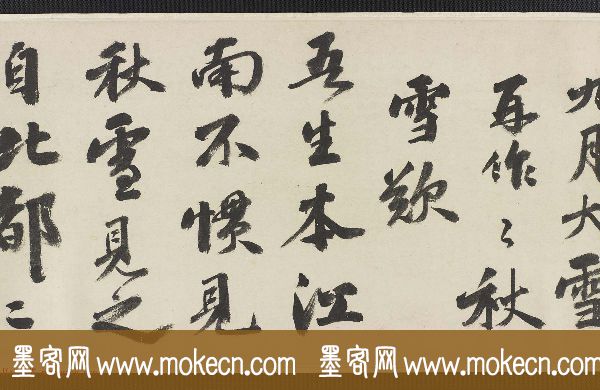 九月大雪
再作〻秋
雪歎
吾生本江
南不慣見
秋雪見之
自北都〻
墨客网 www.mokecn.com 墨客网 www.mokecn.com